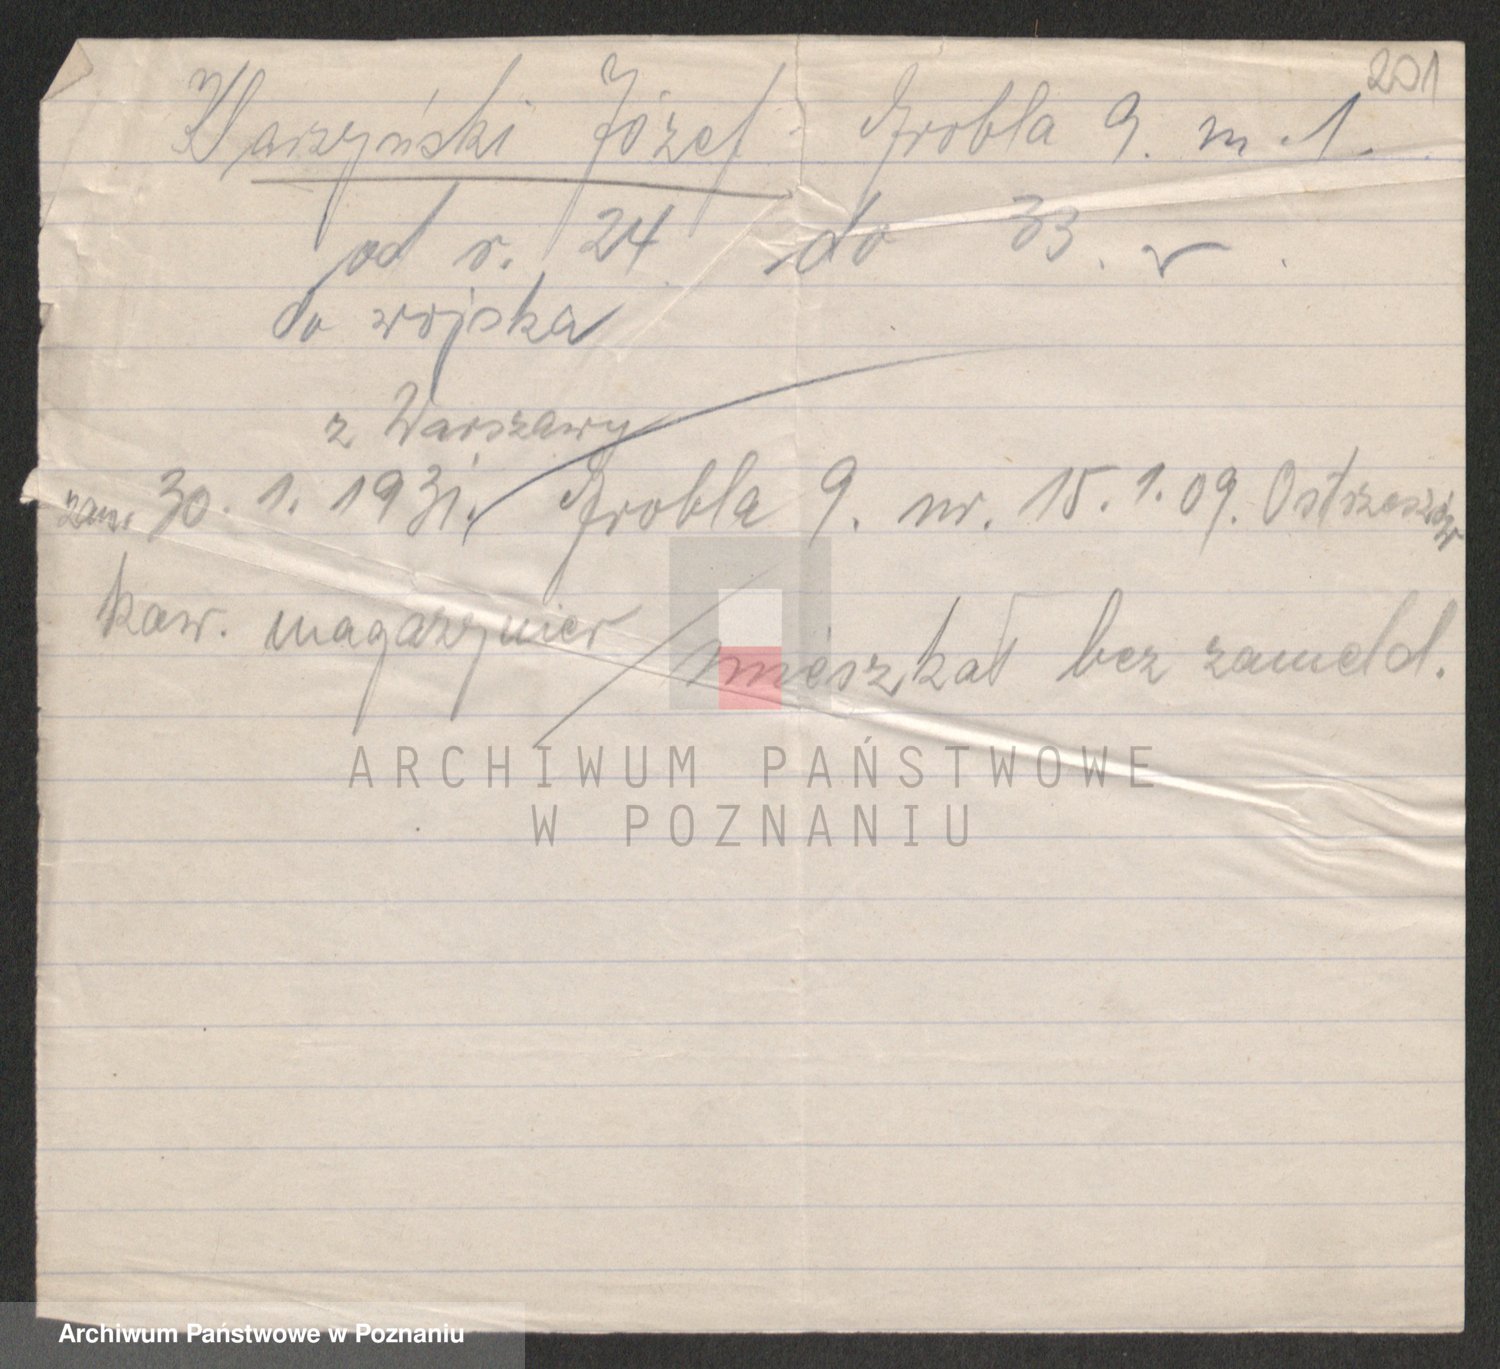 201
Warzyński Józef Grobla 9. m. 1.
od r. 24 do 33. r
do wojska
z Warszawy
zam. 30. 1. 1931. Grobla 9. ur. 15. 1. 09. Ostrzeszów
kaw. magazynier mieszkał bez zameld.
ARCHIWUM PAŃSTWOWE
W POZNANIU
Archiwum Państwowe w Poznaniu